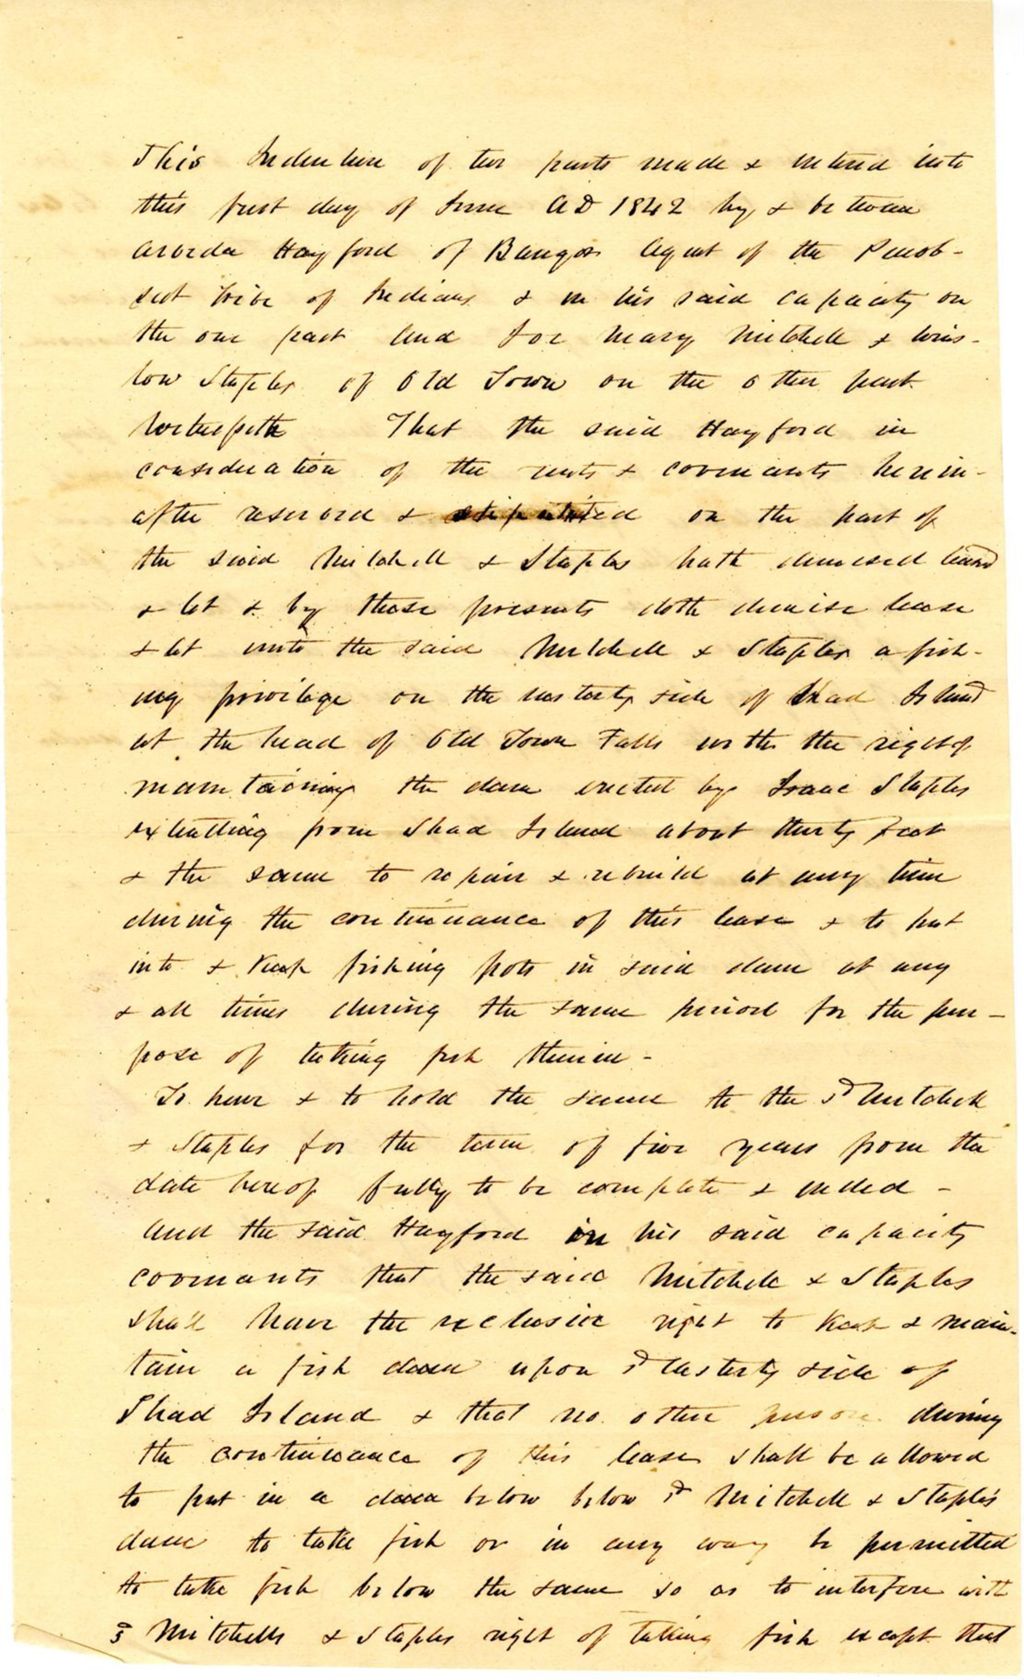 This Indenture of two parts made & entered into
this first day of June AD 1842 by & between
Arvida Hayford of Bangor Agent of the Penob-
scot tribe of Indians & in his said capacity on
the one part And Joe Mary Mitchell & Wins-
low Staples of Old Town on the other part
Witnesseth That the said Hayford in
consideration of the rents & covenants herein-
after reserved & stipulated on the part of
the said Mitchell & Staples hath demised leased
& let & by these presents doth demise lease
& let unto the said Mitchell & Staples a fish-
ing privilege on the easterly side of Shad Island
at the head of Old Town Falls with the right of
maintaining the dam erected by Isaac Staples
extending from Shad Island about thirty feet
& the same to repair & rebuild at any time
during the continuance of this lease & to put
into & keep fishing pots in said dam at any
& all times during the same period for the pur-
pose of taking fish therein -
To have & to hold the same to the sd Mitchell
& Staples for the term of five years from the
date hereof fully to be complete & ended -
And the said Hayford in his said capacity
covenants that the said Mitchell & Staples
shall have the exclusive right to keep & main-
tain a fish dam upon sd Easterly side of
Shad Island & that no other person during
the continuance of this lease shall be allowed
to put in a dam below below sd Mitchell & Staples
dam to take fish or in any way be permitted
to take fish below the same so as to interfere with
sd Mitchells & Staples right of taking fish except that